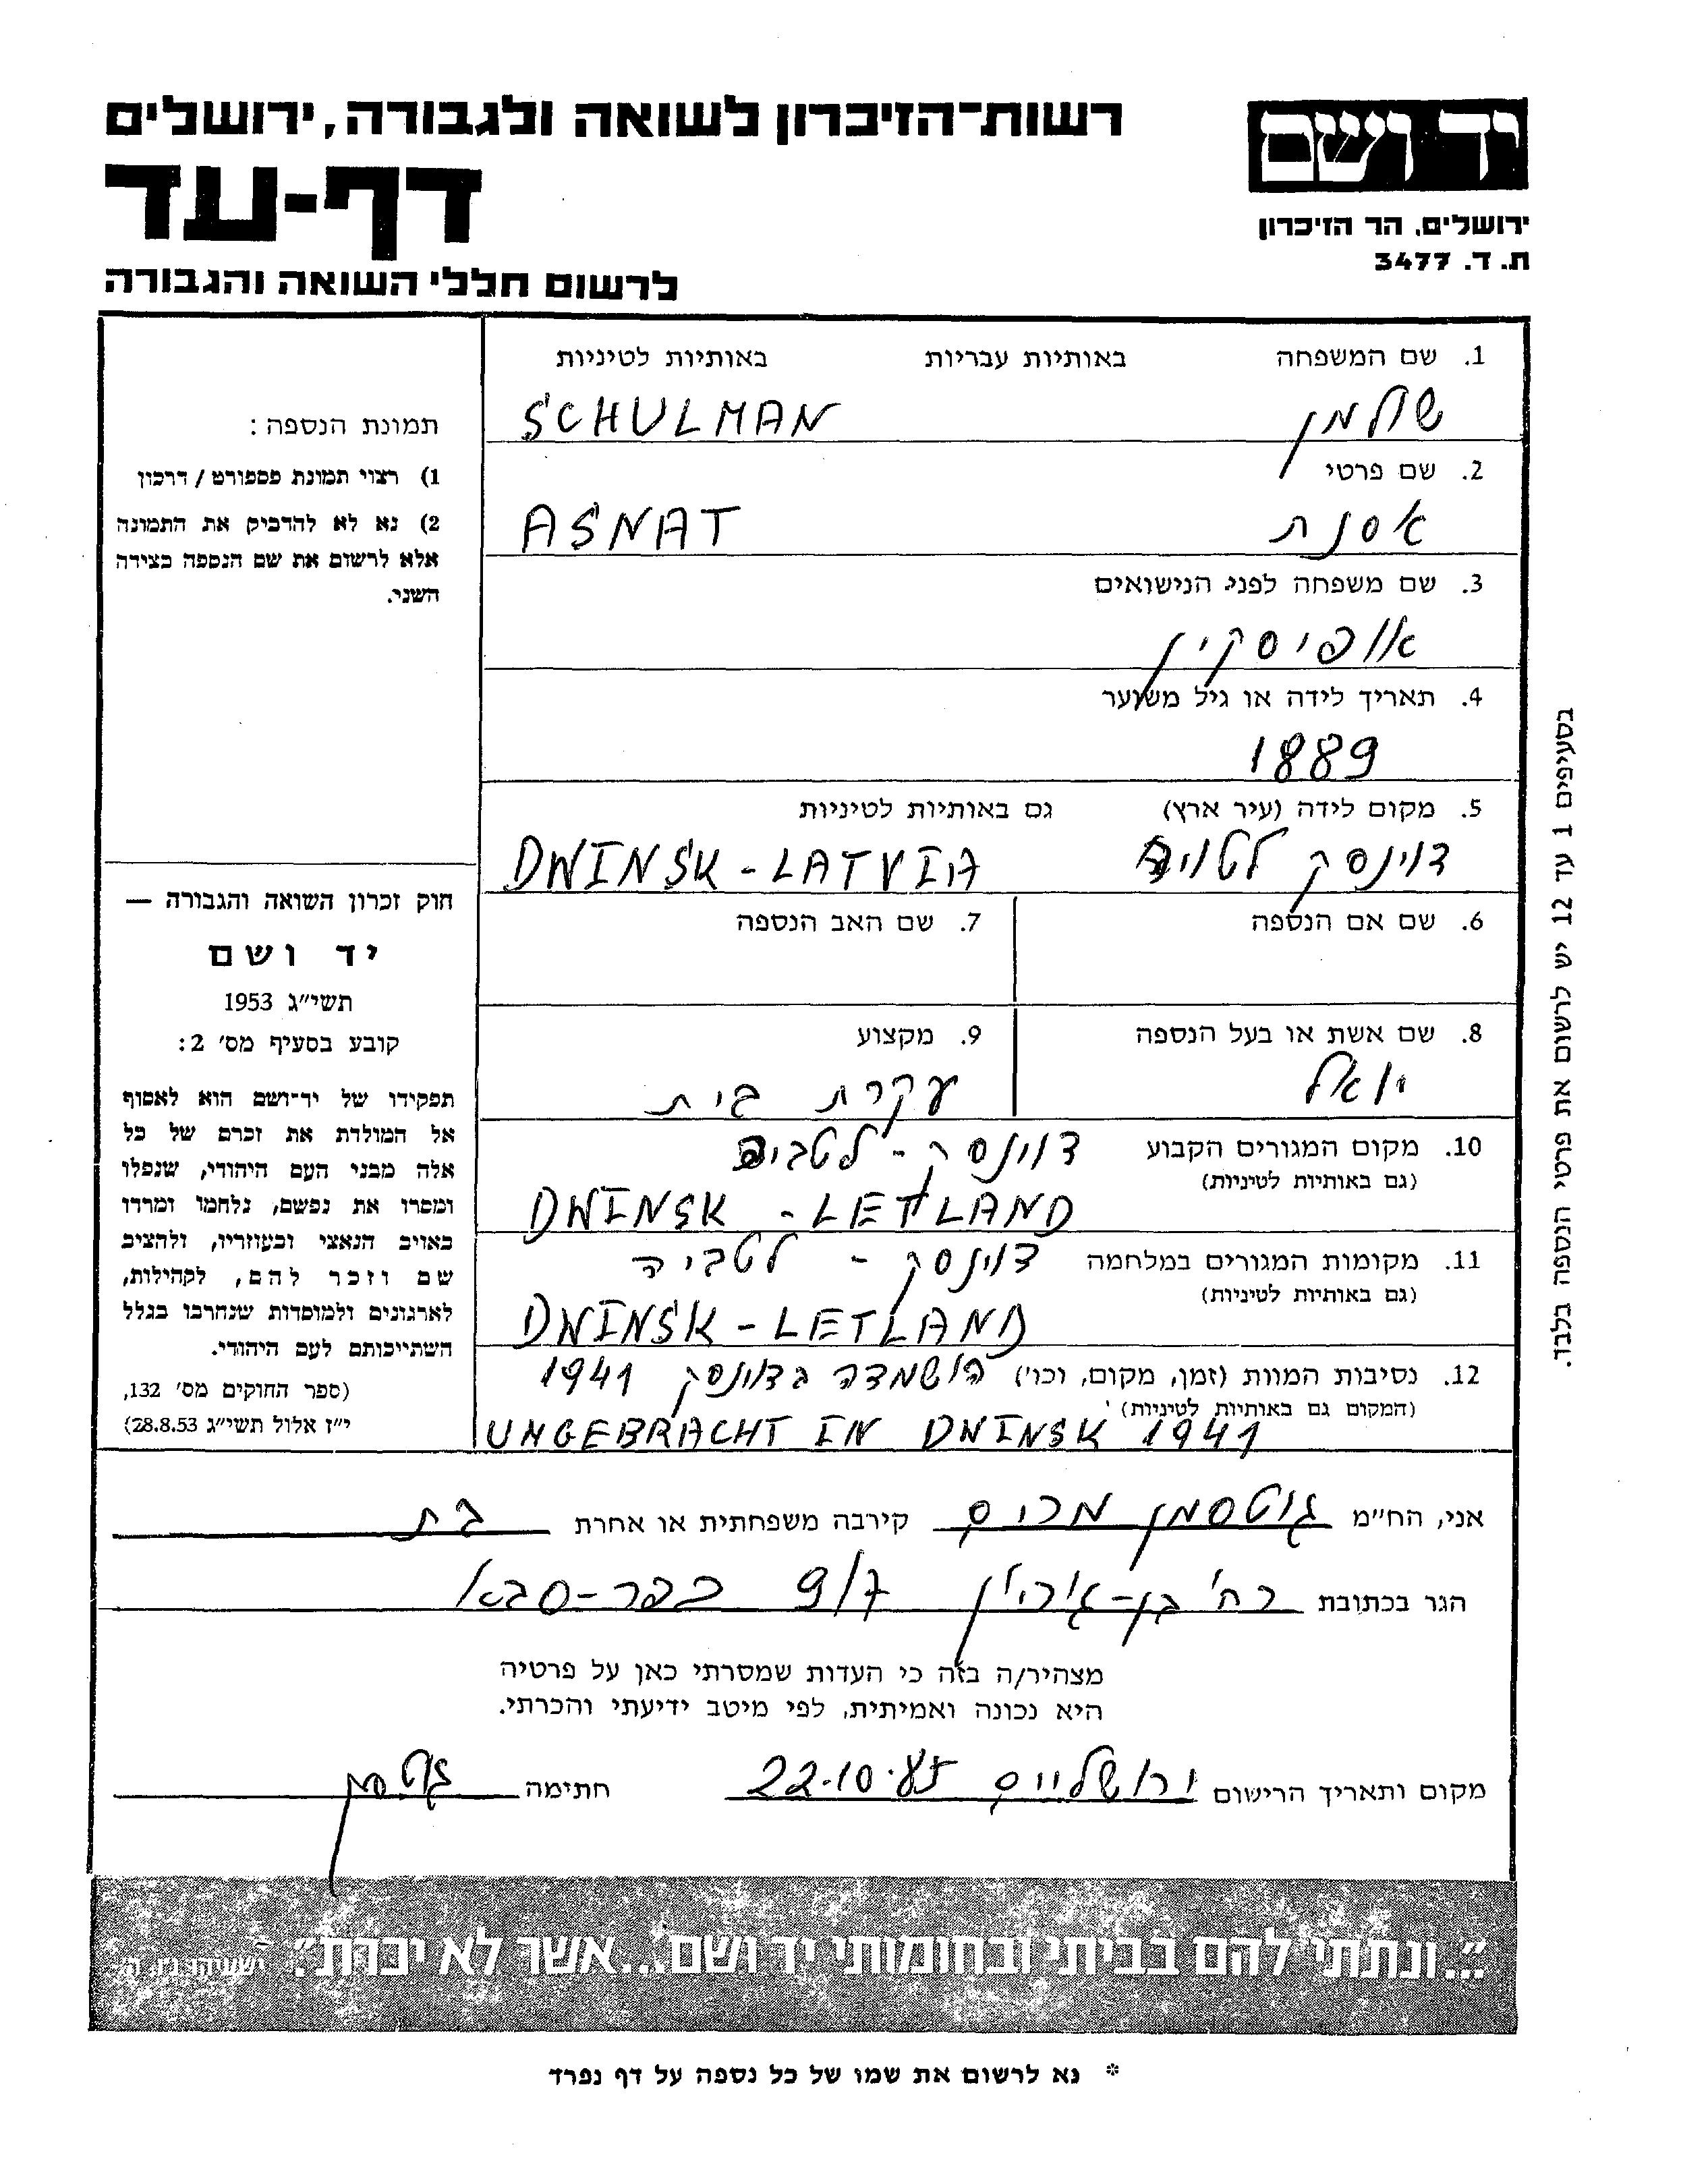 רשות־הזיכרון לשואה ולגבורה, ירושלים
יד ושם
דף-עד
ירושלים, הר הזיכרון
ת. ד. 3477
לרשום חללי השואה והגבורה
1. שם המשפחה באותיות עבריות באותיות לטיניות
שולמן SCHULMAN
2. שם פרטי
אסנת ASNAT
3. שם משפחה לפני הנישואים
אופיסקין
4. תאריך לידה או גיל משוער
1889
5. מקום לידה (עיר ארץ) גם באותיות לטיניות
דוינסק לטויה DWINSK - LATVIA
6. שם אם הנספה 7. שם האב הנספה
8. שם אשת או בעל הנספה 9. מקצוע
יואל עקרת בית
10. מקום המגורים הקבוע דוינסק - לטביה
(גם באותיות לטיניות)
DWINSK - LETLAND
11. מקומות המגורים במלחמה דוינסק - לטביה
(גם באותיות לטיניות)
DWINSK - LETLAND
12. נסיבות המוות (זמן, מקום, וכו') הושמדה בדוינסק 1941
(המקום גם באותיות לטיניות)
UMGEBRACHT IN DWINSK 1941
תמונת הנספה :
1) רצוי תמונת פספורט / דרכון
2) נא לא להדביק את התמונה
אלא לרשום את שם הנספה בצידה
השני.
חוק זכרון השואה והגבורה —
יד ושם
תשי״ג 1953
קובע בסעיף מס׳ 2:
תפקידו של יד־ושם הוא לאסוף
אל המולדת את זכרם של כל
אלה מבני העם היהודי, שנפלו
ומסרו את נפשם, נלחמו ומרדו
באויב הנאצי ובעוזריו, ולהציב
שם וזכר להם, לקהילות,
לארגונים ולמוסדות שנחרבו בגלל
השתייכותם לעם היהודי.
(ספר החוקים מס׳ 132,
י״ז אלול תשי״ג 28.8.53)
בסעיפים 1 עד 12 יש לרשום את פרטי הנספה בלבד.
אני, הח״מ גוטסמן קירבה משפחתית או אחרת בת
הגר בכתובת רח' בן-גוריון 9/7 כפר-סבא
מצהיר/ה בזה כי העדות שמסרתי כאן על פרטיה
היא נכונה ואמיתית, לפי מיטב ידיעתי והכרתי.
מקום ותאריך הרישום ירושליים 22.10.85 חתימה
״...ונתתי להם בביתי ובחומותי יד ושם...אשר לא יכרת״. ישעיהו נ״ו, ה׳
* נא לרשום את שמו של כל נספה על דף נפרד